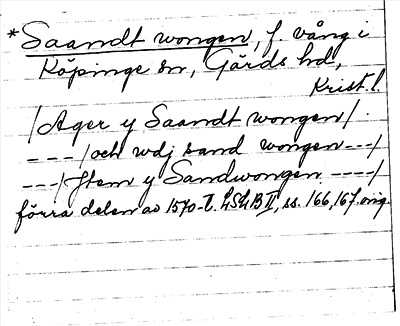 *Saandt wongen, f. vång i
Köpinge sn, Gärds hd,
Krist. l.
/Ager y Saandt wongen/.
--- /och wdj sand wongen ---/
---/Item y Sandwongen ----/
förra delen av 1570-t. LSLB II, ss. 166, 167. orig.